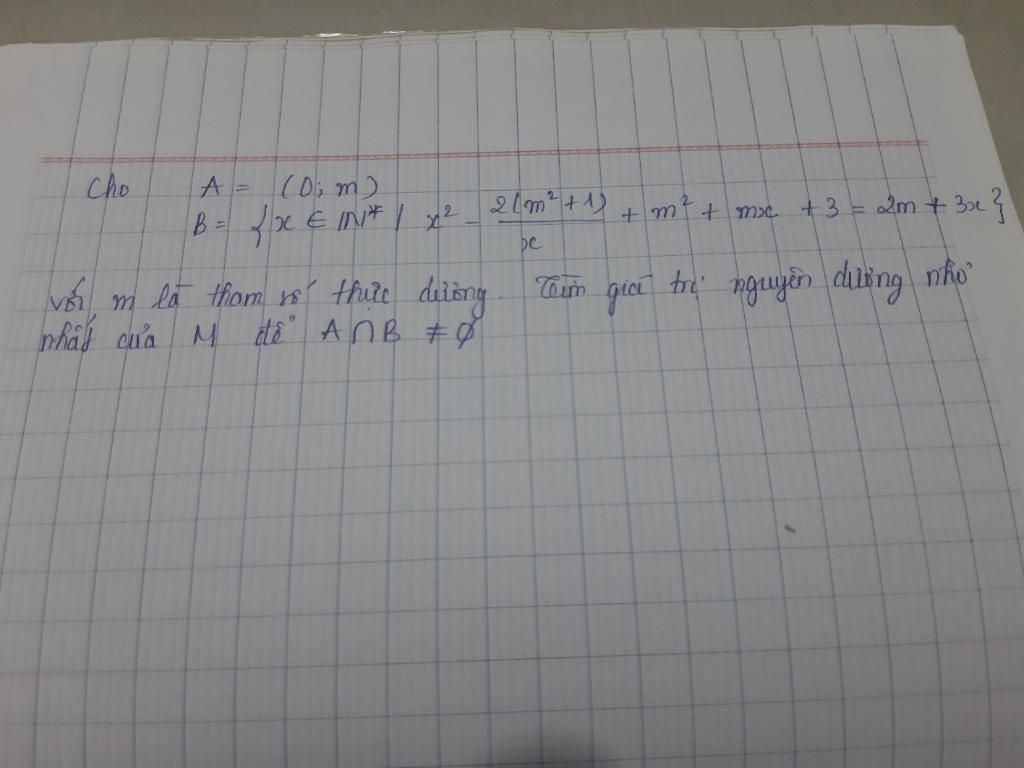 Cho A = (0; m)
B = {x ∈ ℕ* | x² - 2(m² + 1)/x + m² + mx + 3 = 2m + 3x}
với m là tham số thực dương. Tìm giá trị nguyên dương nhỏ
nhất của M để A ∩ B ≠ ∅